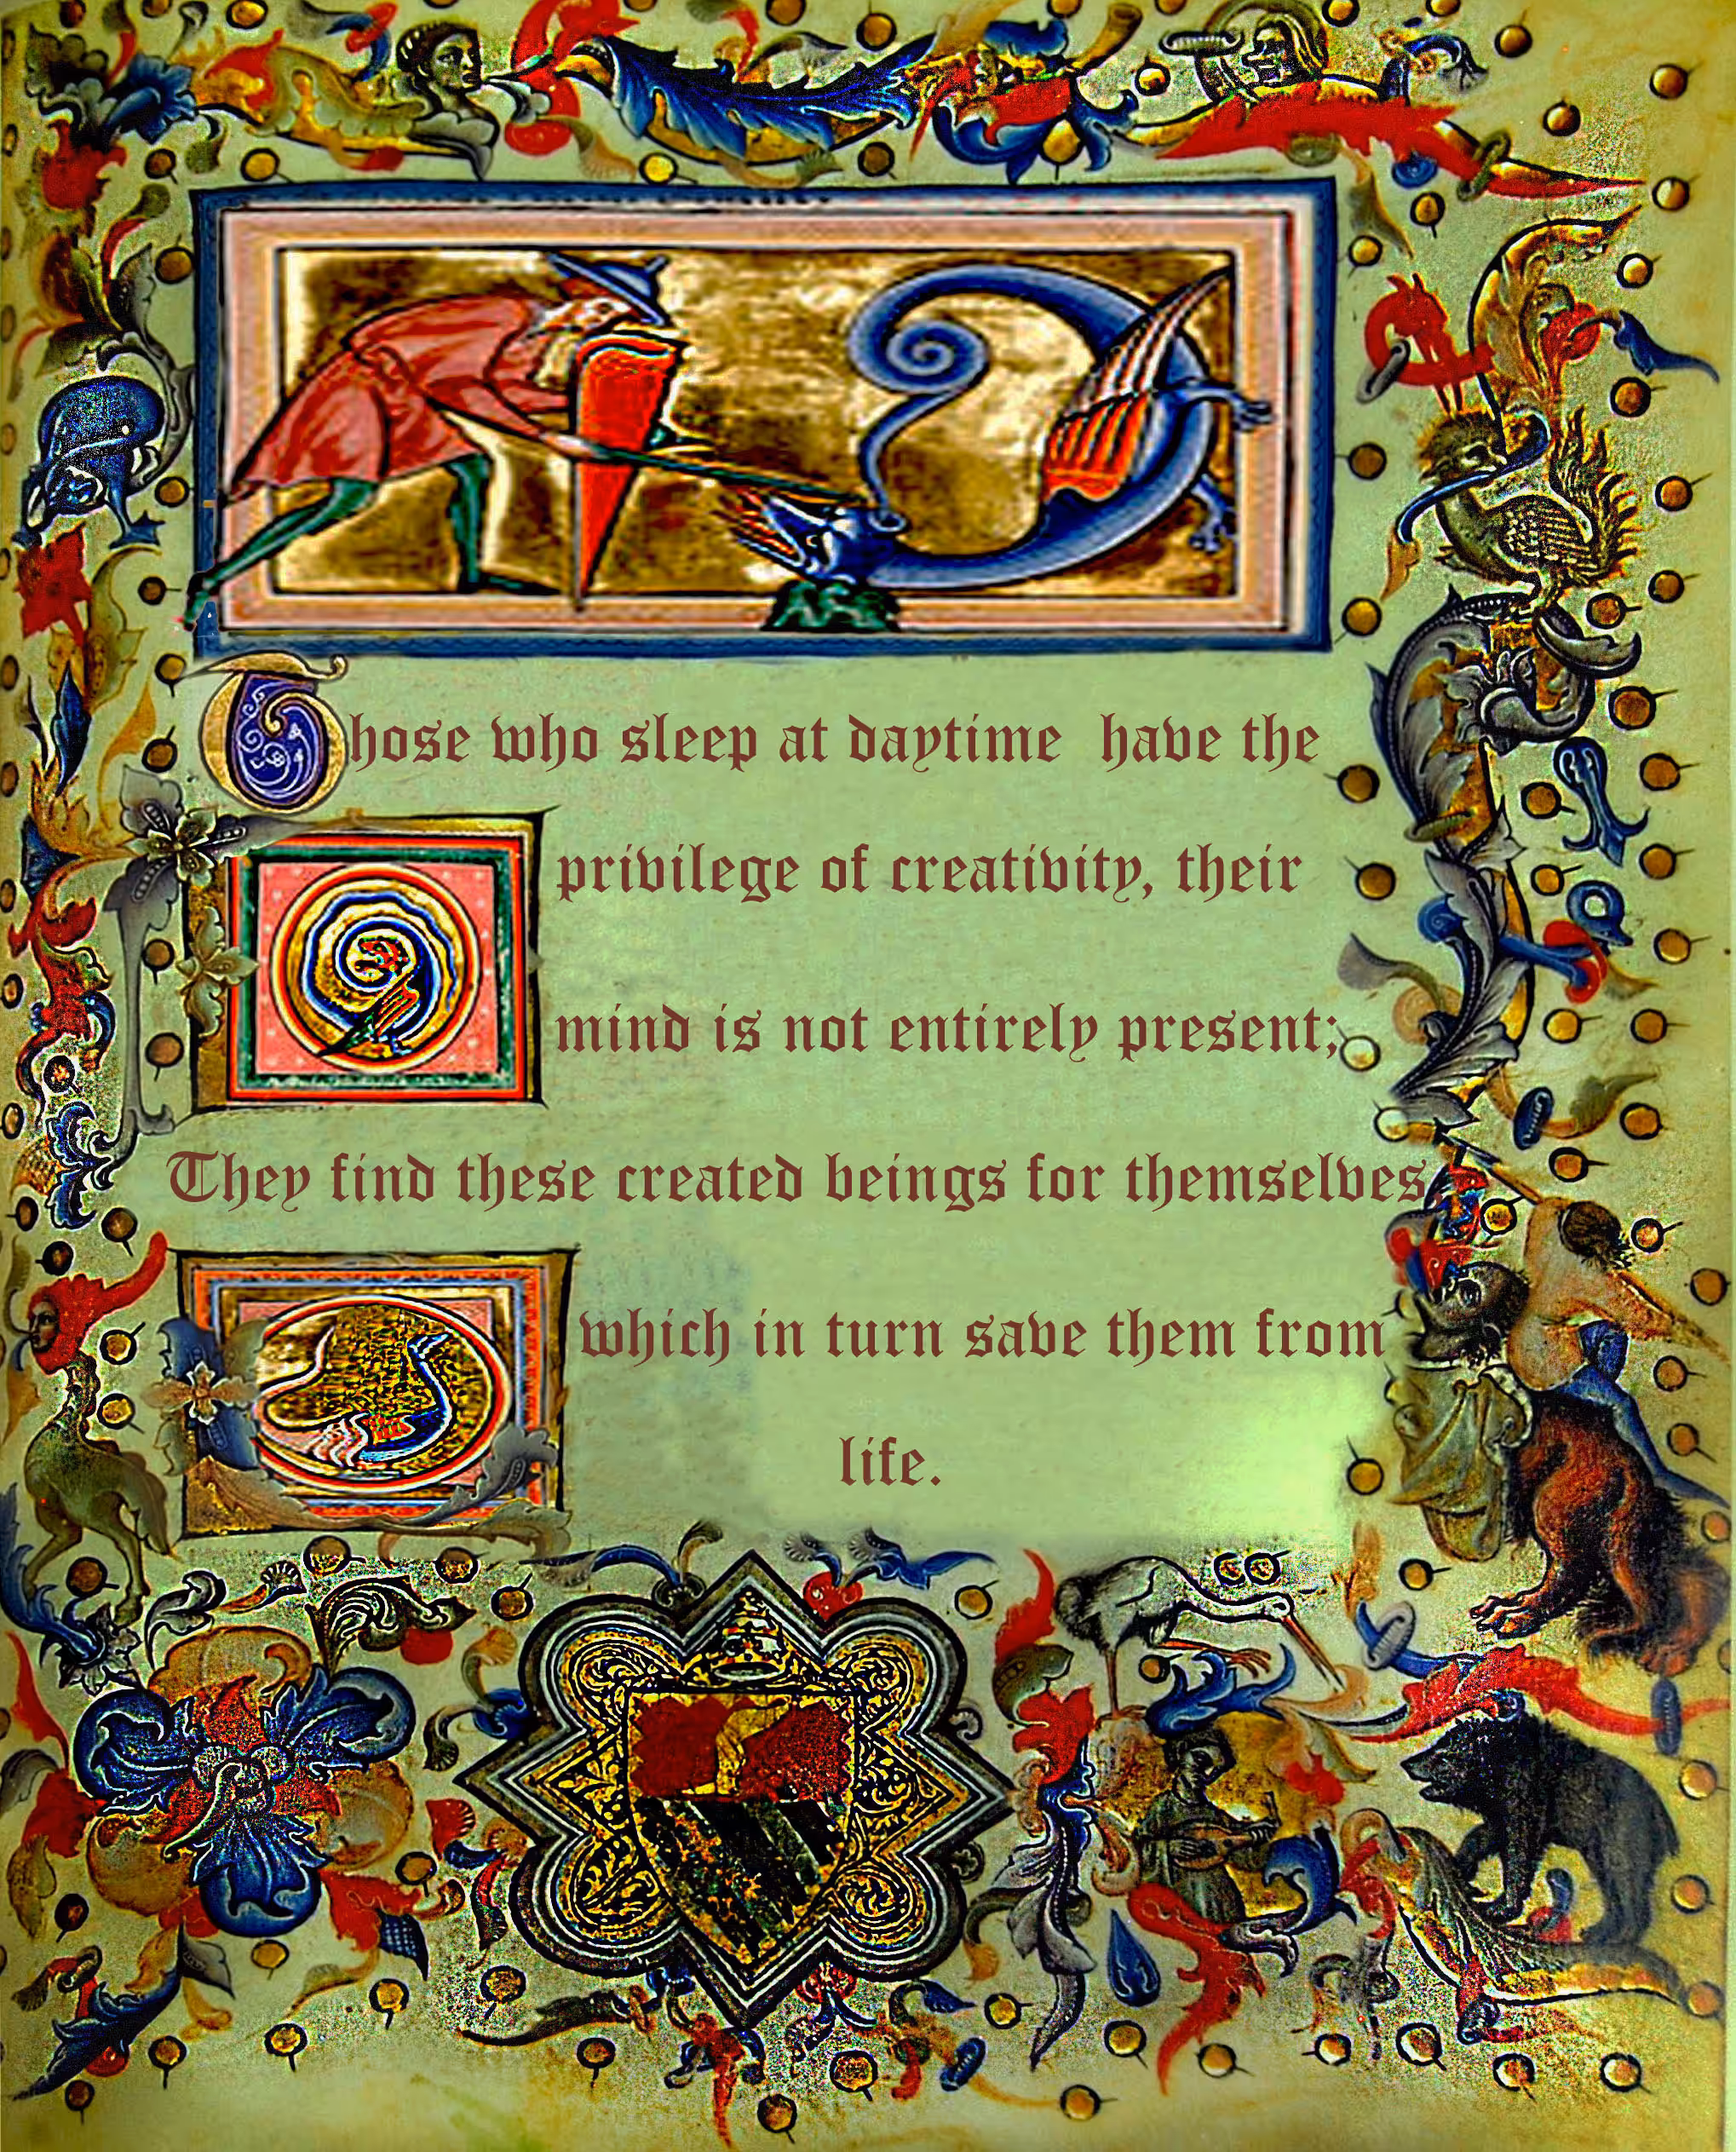 Those who sleep at daytime have the
privilege of creativity, their
mind is not entirely present;
They find these created beings for themselves
which in turn save them from
life.